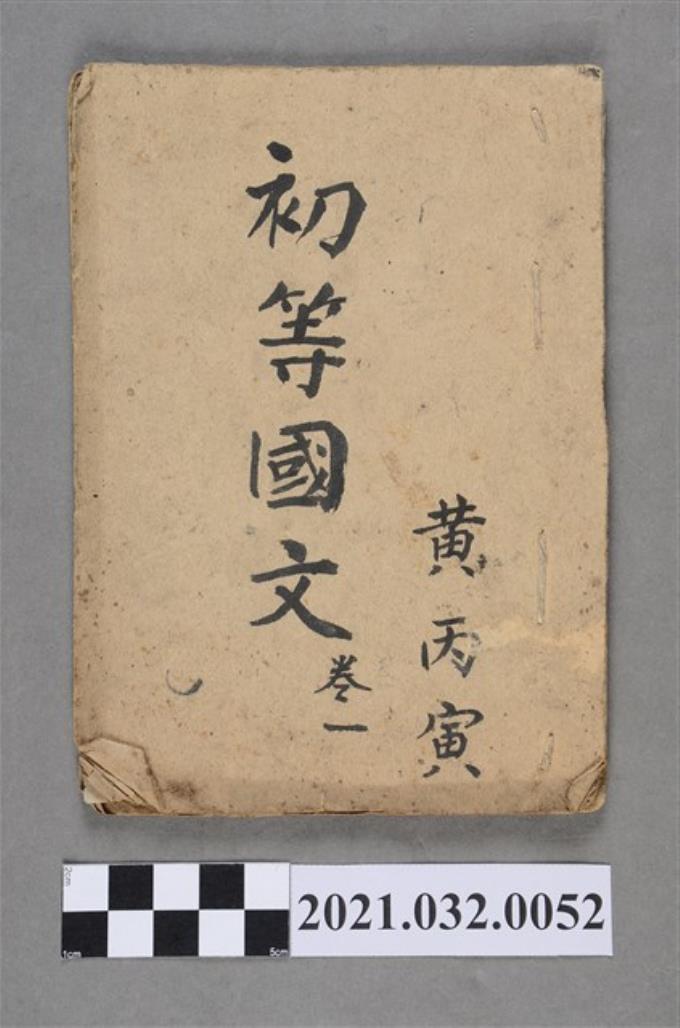 初等國文
卷一
黄丙寅
2cm
1cm
5cm
2021.032.0052